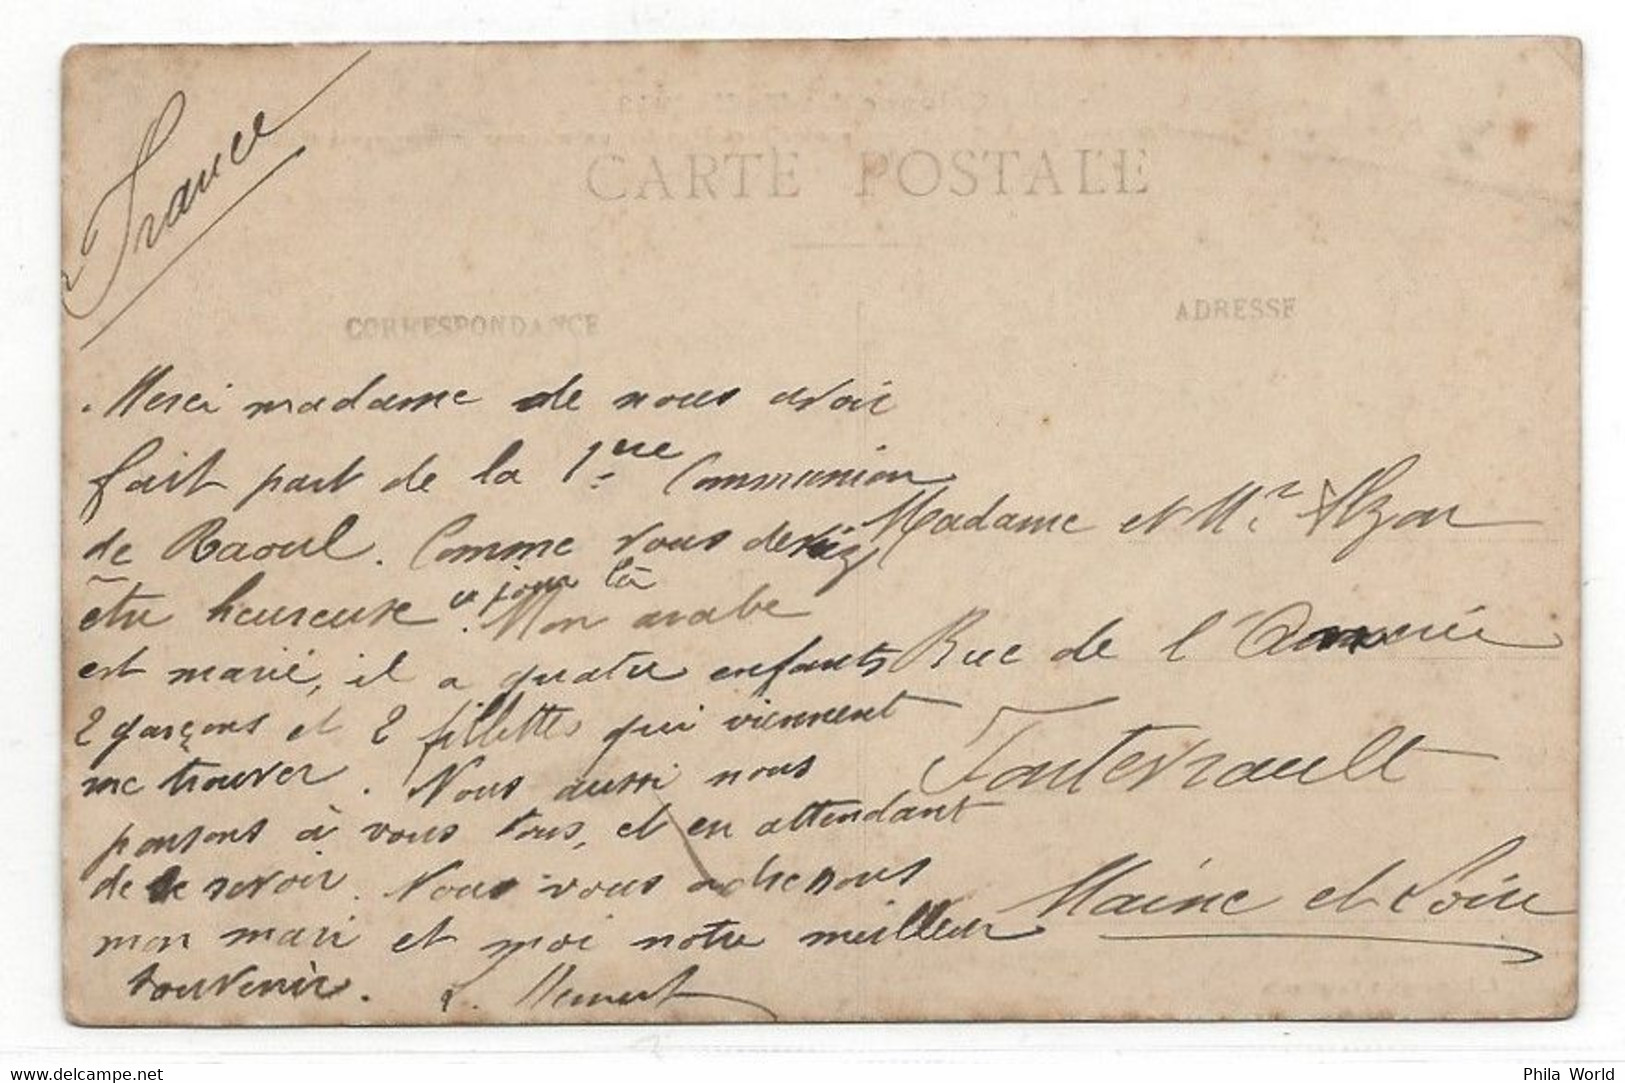 France
CARTE POSTALE
CORRESPONDANCE
ADRESSE
Merci madame de nous avoir
fait part de la 1ère Communion
de Raoul. Comme vous deviez
être heureuse ce jour là. Mon arabe
est marié, il a quatre enfants
2 garçons et 2 fillettes qui viennent
me trouver. Nous aussi nous
pensons à vous tous, et en attendant
de se revoir. Nous vous adressons
mon mari et moi notre meilleur
souvenir. L.
Madame et Mr
Rue de l'
Fontevrault
Maine et Loire
delcampe.net
Phila World